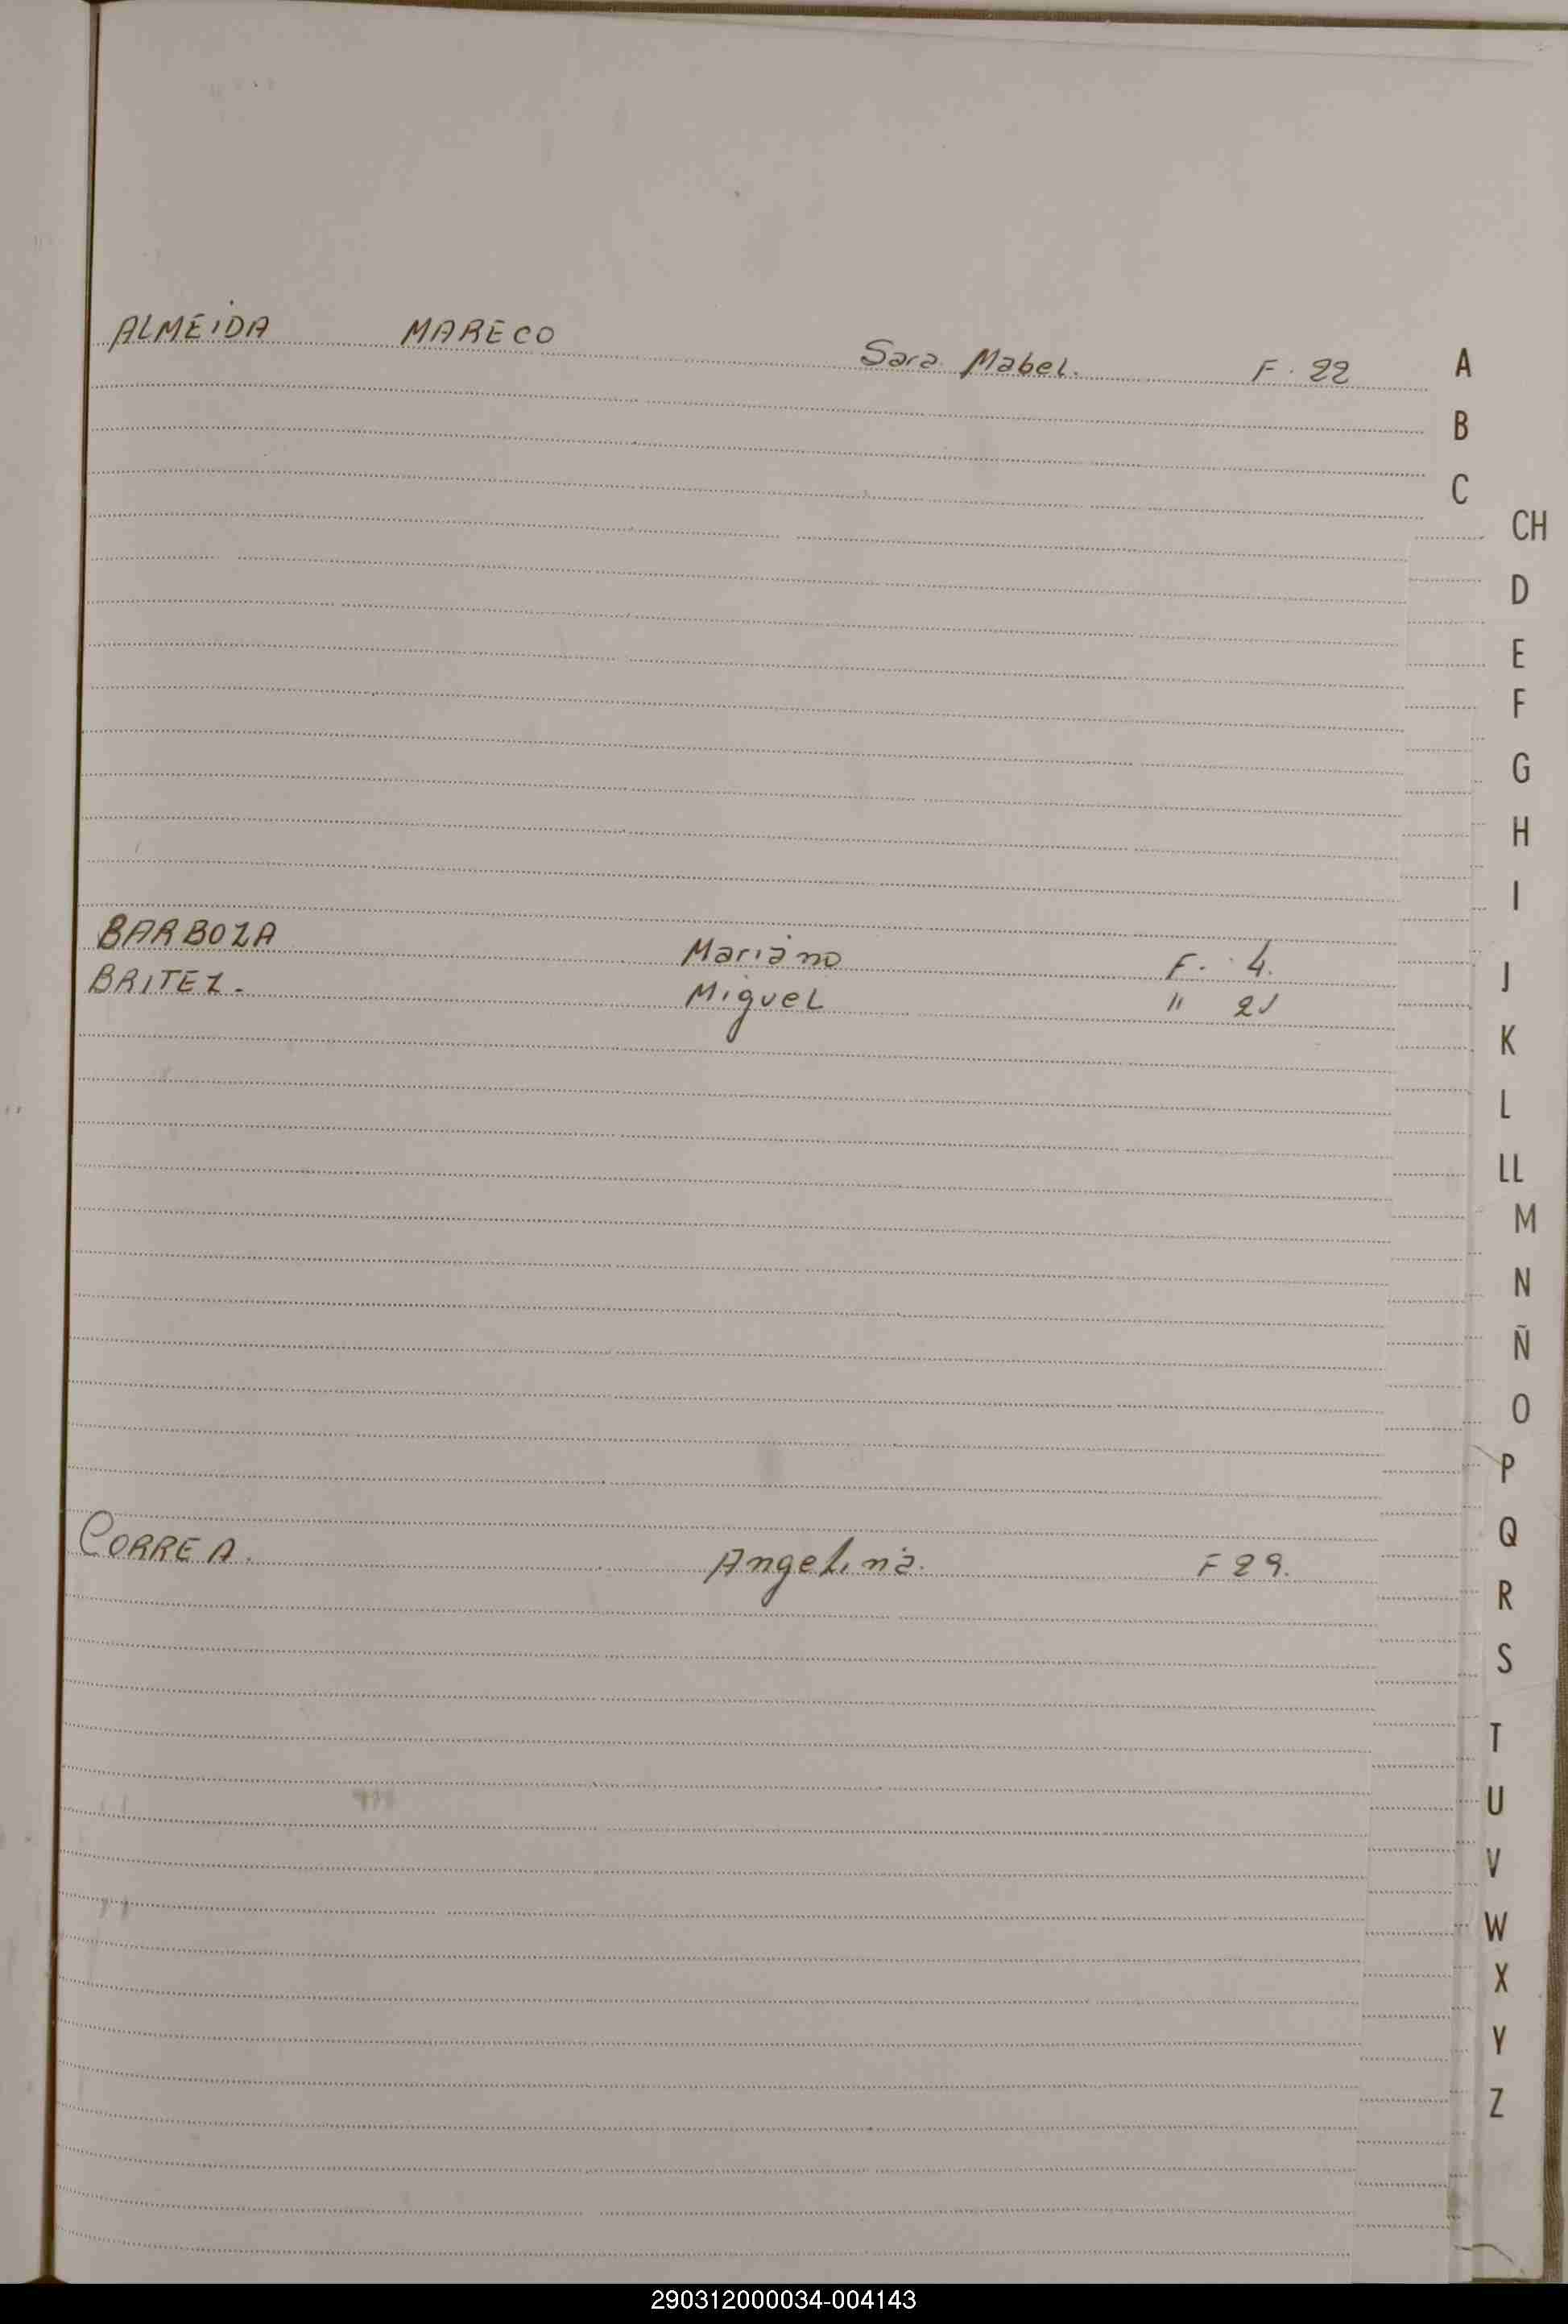 ALMEIDA MARECO Sara Mabel. F. 22
A
B
C
CH
D
E
F
G
H
I
BARBOZA Mariano F. 4.
BRITEZ. Miguel " 21
J
K
L
LL
M
N
Ñ
O
P
Q
CORREA. Angelina. F 29.
R
S
T
U
V
W
X
Y
Z
290312000034-004143